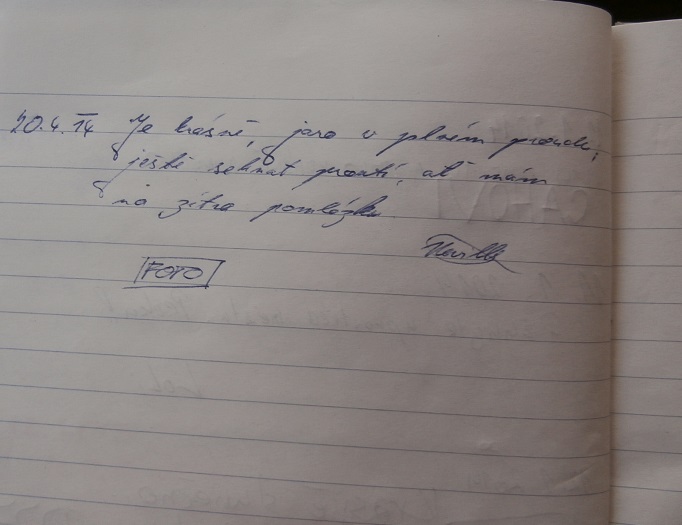 20.4.14 Je krásně, jaro v plném proudu,
ještě sehnat proutí, ať mám
na zítra pomlázku.
Neville
FOTO